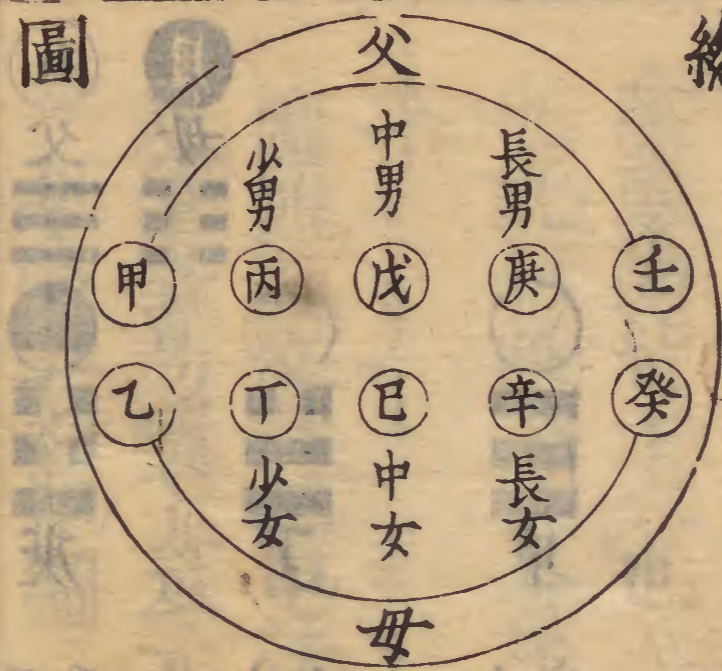 圖
父
長男
中男
少男
壬庚戊丙甲
癸辛巳丁乙
長女
中女
少女
母